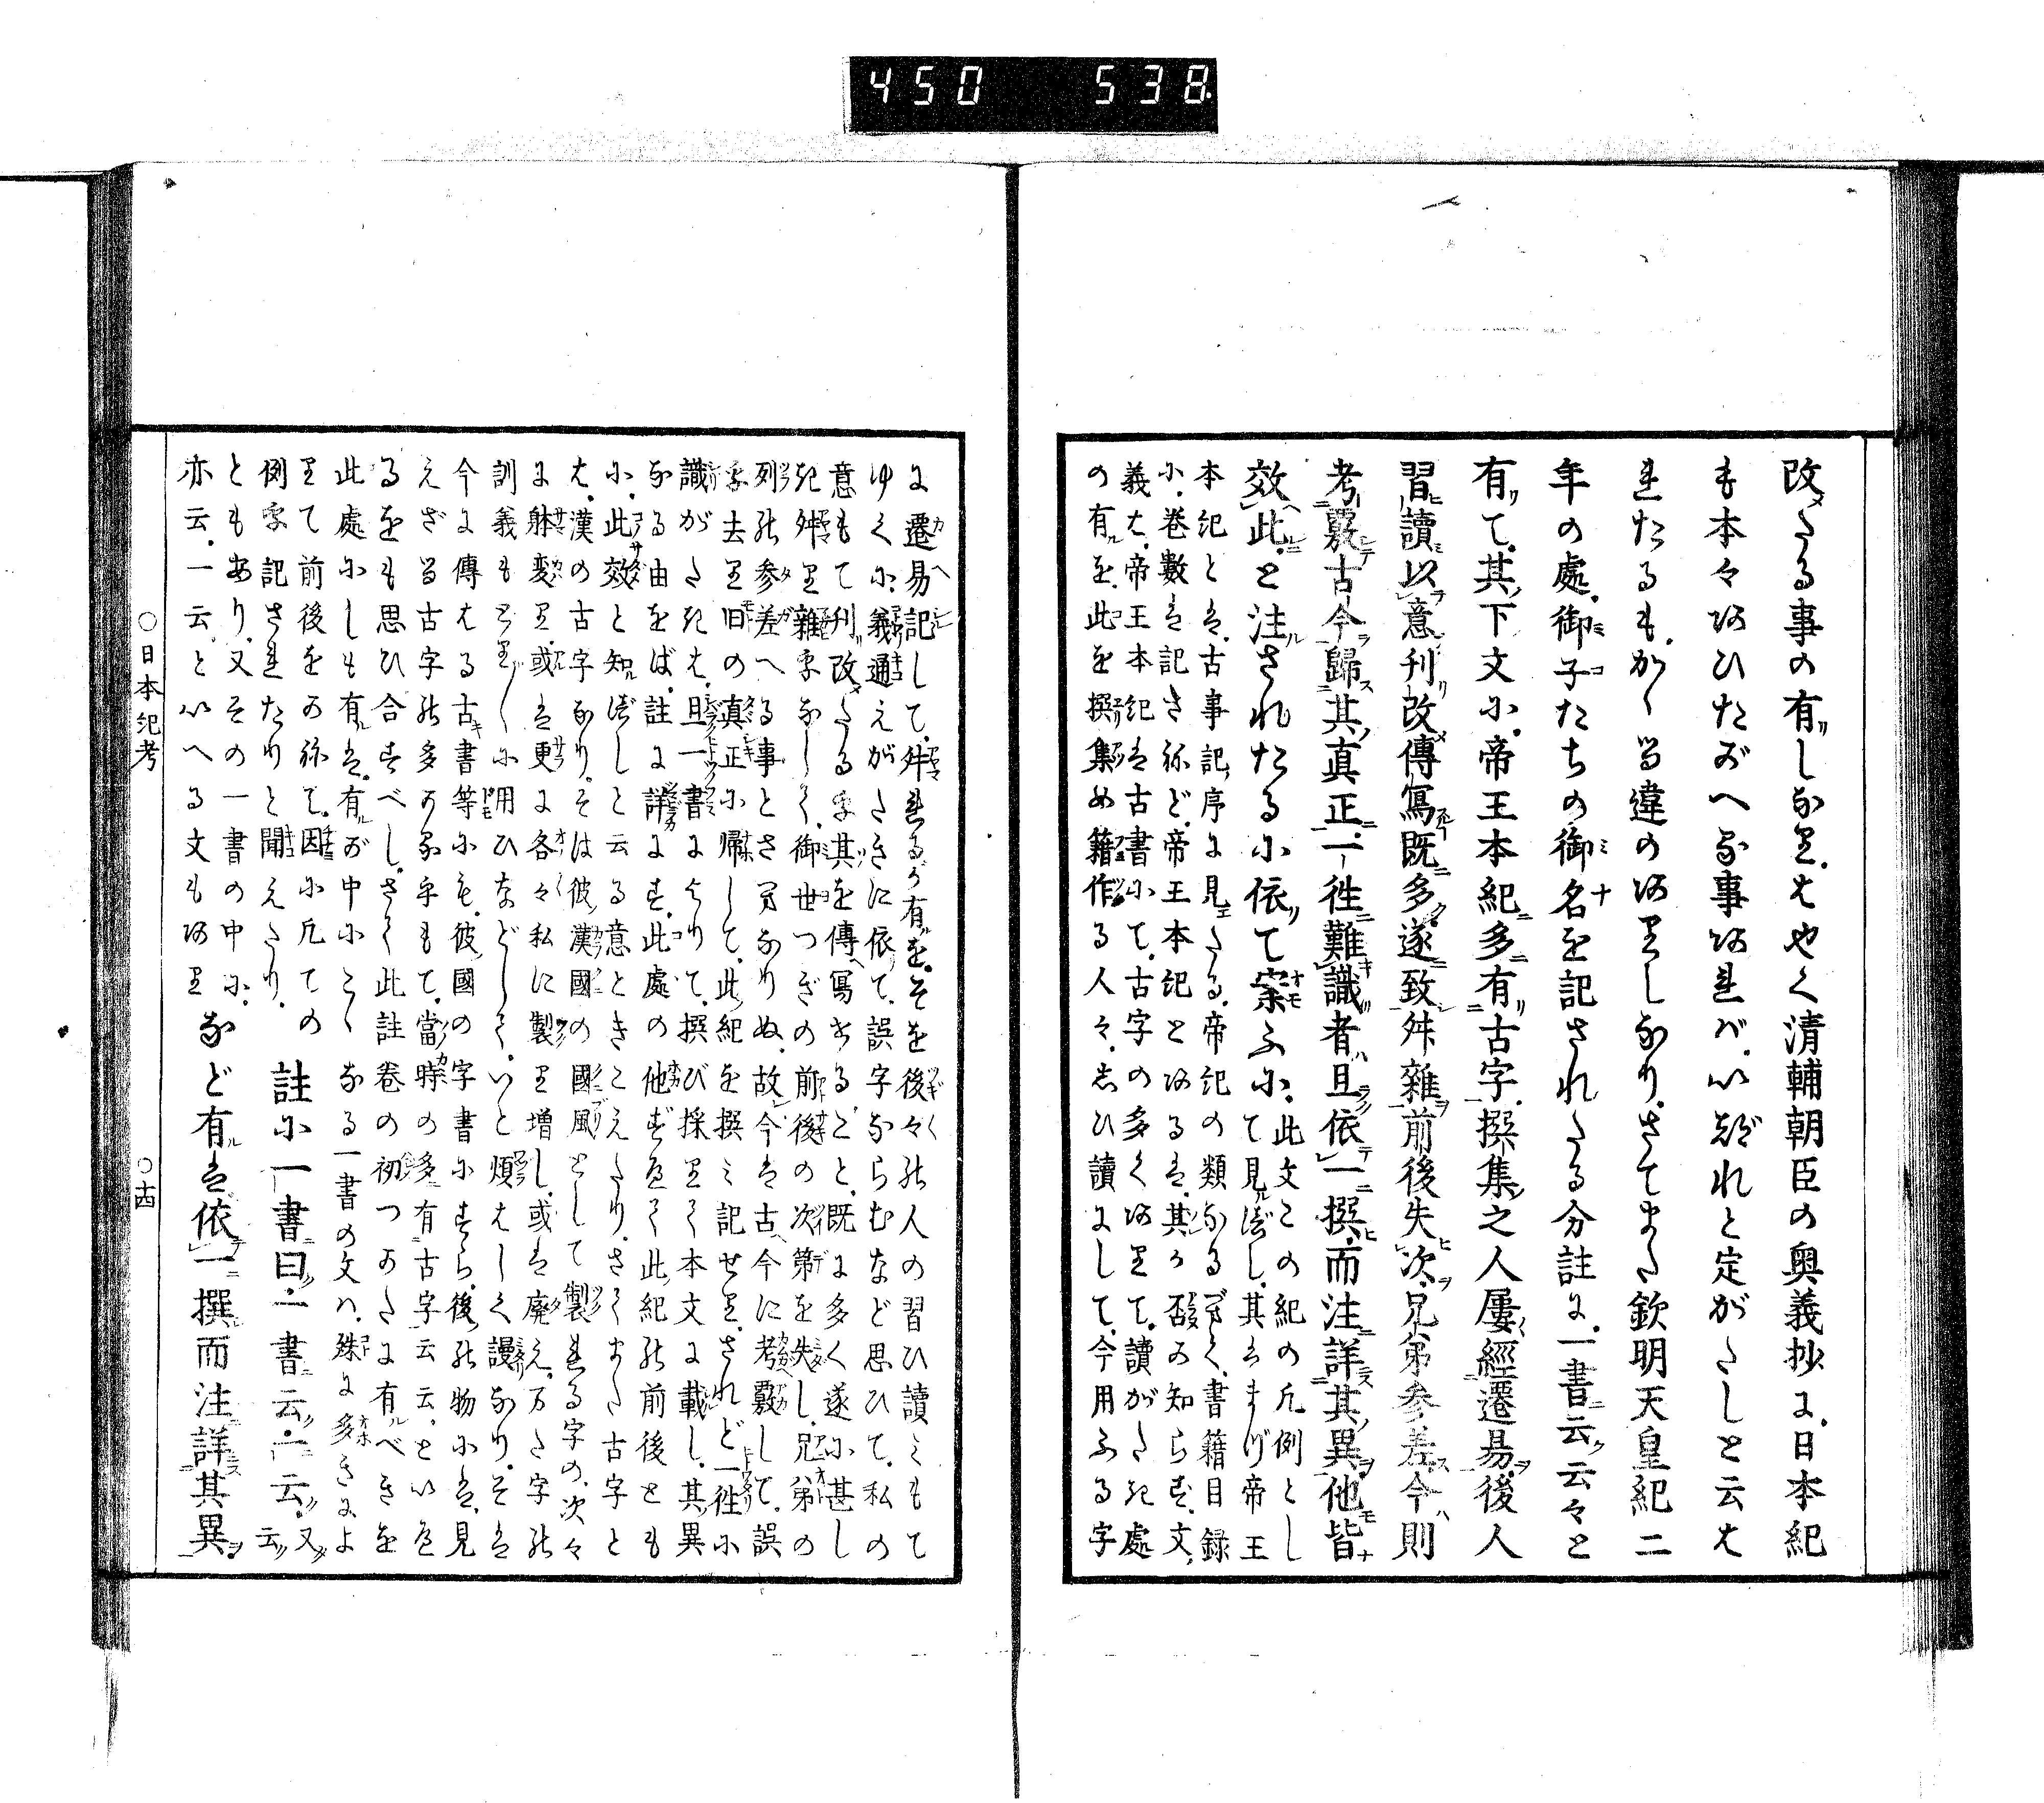 450 538
改たる事の有しなり。はやく清輔朝臣の奥義抄に、日本紀
も本々あひたがへる事あれば、いづれと定がたしと云は
れたるも、かゝる違のありしなり。さてまた欽明天皇紀二
年の處、御子たちの御名を記されたる分註に、一書云云々と
有て、其下文に、帝王本紀多有古字、撰集之人屢經遷易、後人
習讀以意刊改、傳寫既多、遂致舛雜、前後失次、兄弟參差、今則
考覈古今歸其真正、一徃難識者、且依一撰而注詳其異、他皆
效此と注されたるに依て案ふに、
此文この紀の凡例とし
て見べし、其はまづ帝王
本紀とは、古事記序に見えたる、帝紀の類なるべく、書籍目録
に、卷數は記さねど、帝王本記とあるは、其か否か知らず、文
義は、帝王本紀は古書にて、古字の多くありて、讀がたき處
の有を、此を撰集め籍作る人々、思ひ讀にして、今用ふる字
に遷易記して、舛れるか有を、そを後々の人の習ひ讀みもて
ゆくに、義通えがたきに依て、誤字ならむなど思ひて、私の
意もて刊改たるを其を傳へ寫せること、既に多く遂に甚し
き舛り雜をなしく、御世つぎの前後の次第を失し、兄弟の
列の參差へる事とさへなりぬ、故今は古今に考覈して、誤
を去り旧の真正に歸して、此紀を撰み記せり、されど一徃に
識がたきは、且一書によりて、撰び採りて本文に載し、其異
なる由をば、註に詳にす、此處の他すべて此紀の前後とも
に、此效と知べしと云る意ときこえたり、さてまた古字と
は、漢の古字なり、そは彼漢國の國風として製れる字の、次々
に躰變り、或は更に各々私に製り增し、或は廢え、万た字の
訓義もとり〴〵に用ひなどしく、いと煩はしく謾なり、そは
今に傳はる古書等にも、彼國の字書にすら、後の物には、見
えざる古字の多かるをもて、當時の多有古字云云、といへ
るをも思ひ合すべし、さて此註卷の初つかたに有べきを
此處にしも有は、有が中にこゝなる一書の文ハ、殊に多きによ
りて前後をかねて、因に凡ての
例を記されたりと聞えたり、
註に一書曰、一書云、一云、又云
とも有り、又その一書の中に、
亦云、一云、といへる文もあり
など有は依一撰而注詳其異
○日本紀考　○十四